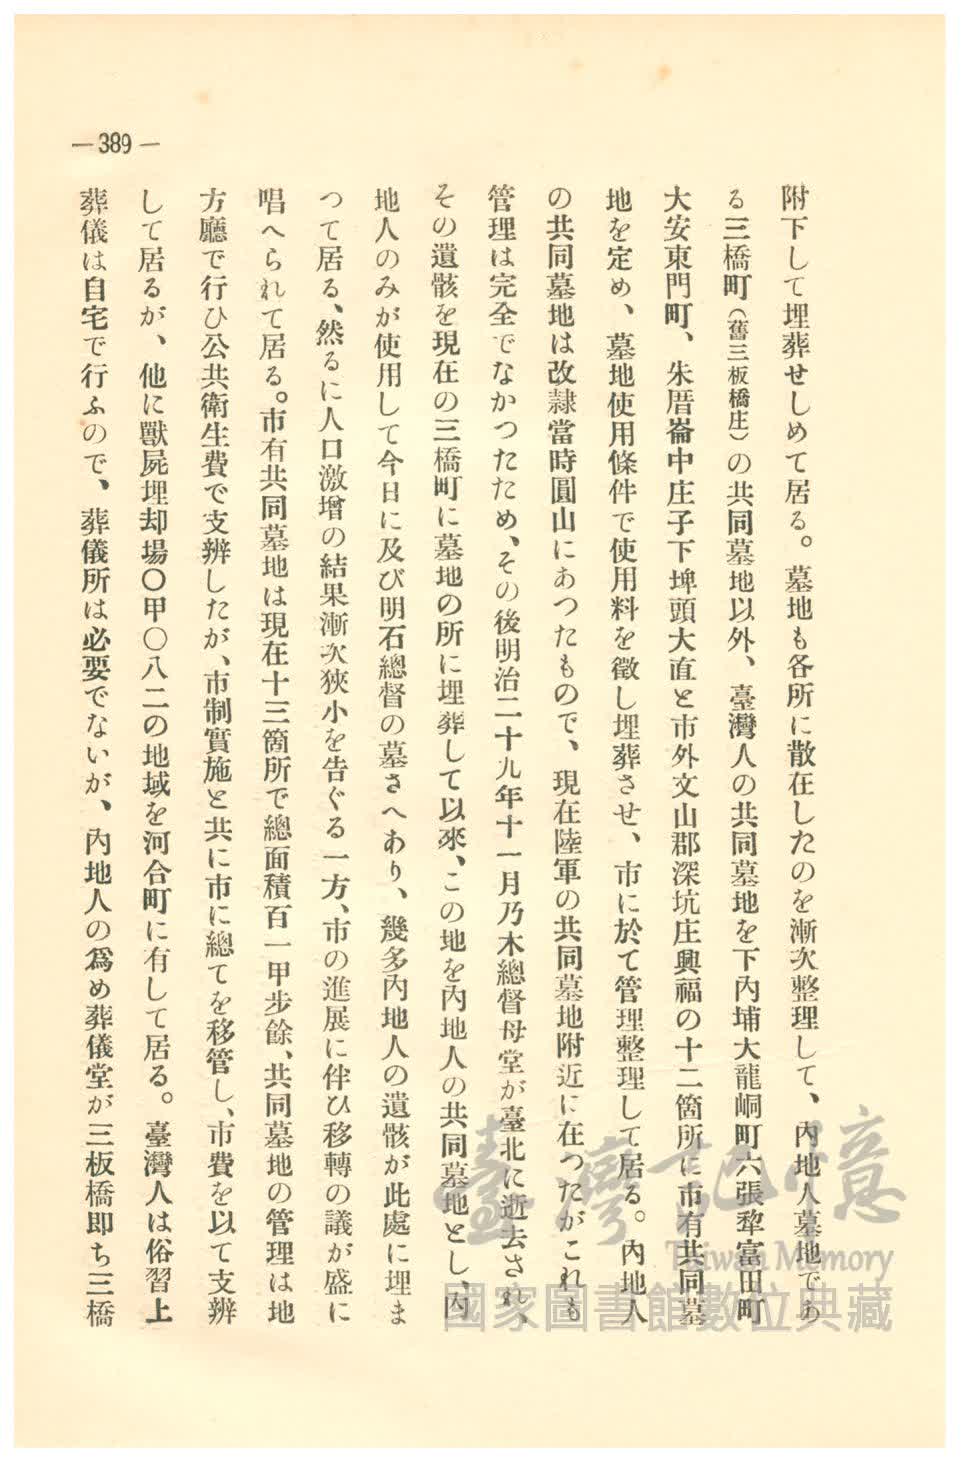 —389—
附下して埋葬せしめて居る。墓地も各所に散在したのを漸次整理して、內地人墓地であ
る三橋町(舊三板橋庄)の共同墓地以外、臺灣人の共同墓地を下內埔大龍峒町六張犂富田町
大安東門町、朱厝崙中庄子下埤頭大直と市外文山郡深坑庄興福の十二箇所に市有共同墓
地を定め、墓地使用條件で使用料を徵し埋葬させ、市に於て管理整理して居る。內地人
の共同墓地は改隷當時圓山にあつたもので、現在陸軍の共同墓地附近に在つたがこれも
管理は完全でなかつたため、その後明治二十九年十一月乃木總督母堂が臺北に逝去され、
その遺骸を現在の三橋町に墓地の所に埋葬して以來、この地を內地人の共同墓地とし、內
地人のみが使用して今日に及び明石總督の墓さへあり、幾多內地人の遺骸が此處に埋ま
つて居る、然るに人口激增の結果漸次狹小を告ぐる一方、市の進展に伴ひ移轉の議が盛に
唱へられて居る。市有共同墓地は現在十三箇所で總面積百一甲步餘、共同墓地の管理は地
方廳で行ひ公共衛生費で支辨したが、市制實施と共に市に總てを移管し、市費を以て支辨
して居るが、他に獸屍埋却場〇甲〇八二の地域を河合町に有して居る。臺灣人は俗習上
葬儀は自宅で行ふので、葬儀所は必要でないが、內地人の爲め葬儀堂が三板橋卽ち三橋
臺灣記憶
Taiwan Memory
國家圖書館數位典藏